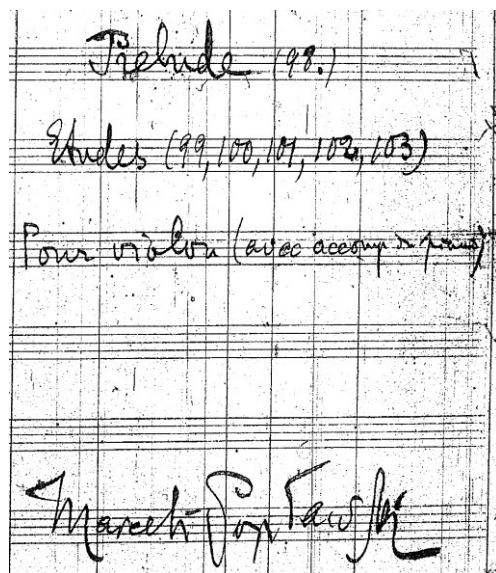 Prelude (98.)
Etudes (99, 100, 101, 102, 103)
Pour violon (avec accomp de piano)
Marceli Popławski